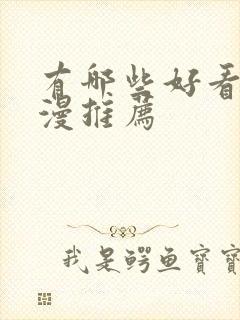 有哪些好看
漫推薦
我是鳄鱼寶寶